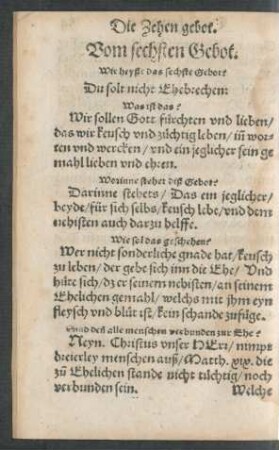 Die Zehen gebot.
Vom sechsten Gebot.
Wie heyßt das sechste Gebot?
Du solt nicht Ehebrechen:
Was ist das?
Wir sollen Gott fürchten vnd lieben/
das wir keusch vnd züchtig leben/ iñ wor-
ten vnd wercken/ vnd ein jeglicher sein ge
mahl lieben vnd ehren.
Worinne stehet diß Gebot?
Darinne stehets/ Das ein jeglicher/
beyde/ für sich selbs/ keusch lebe/ vnd dem
nehisten auch darzu helffe.
Wie sol das geschehen?
Wer nicht sonderliche gnade hat/ keusch
zu leben/ der gebe sich inn die Ehe/ Vnd
hüte sich/ dz er seinem nehisten/ an seinem
Ehelichen gemahl/ welchs mit jhm eyn
fleysch vnd blüt ist/ kein schande zufüge.
Sind deñ alle menschen verbunden zur Ehe?
Neyn. Christus vnser HErr/ nimpt
dreierley menschen auß/ Matth. xix. die
zů Ehelichen stande nicht tüchtig/ noch
verbunden sein. Welche